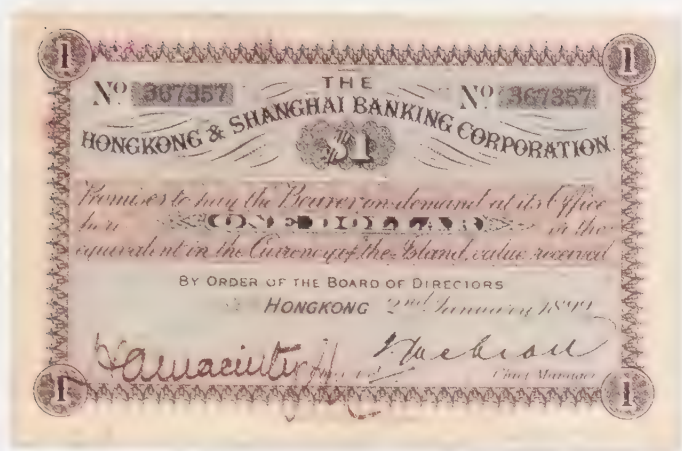 1 1
Nº 367357 THE Nº 367357
HONGKONG & SHANGHAI BANKING CORPORATION.
$1
Promises to pay the Bearer on demand at its Office
here ONE DOLLAR or the
equivalent in the Currency of the Island, value received
BY ORDER OF THE BOARD OF DIRECTORS
HONGKONG 2nd January 1899
Chief Manager
1 1